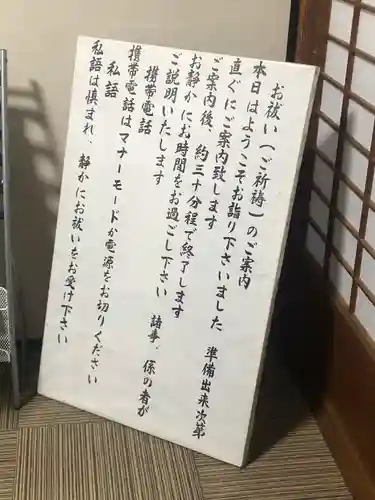 お祓い(ご祈祷)のご案内
本日はようこそお詣り下さいました 準備出来次第
直ぐにご案内致します
ご案内後、約三十分程で終了します
お静かにお時間をお過ごし下さい 諸事、係の者が
ご説明いたします
携帯電話
携帯電話はマナーモードか電源をお切りください
私語
私語は慎まれ、静かにお祓いをお受け下さい